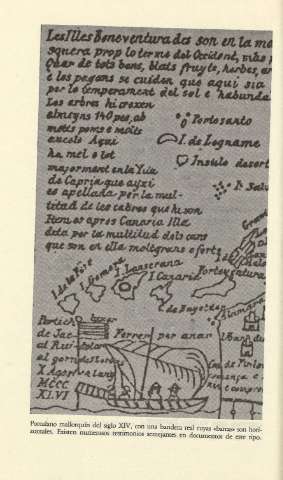 Les Illes Beneventurades son en la ma
squera prop lo terme del Occident, mas p
Quar de tots bens, blats fruyts, herbes, ar
e los pagans se cuiden que aqui sia
per lo temperament del sol e habunda
Los arbres hi crexen
almenys 140 peus, ab
molts poms e molts
aucels Aqui
ha mel e let
majorment en la Yla
de Capria que ayxi
es apellada per la mul-
titud de les cabres que hi son
Item es apres Canaria Illa
dita per la multitud dels cans
que son en ella molt grans e forts
Porto santo
I. de Legname
Insula desert
I. Salv
I. Gomera
I. Lanserana
I. Canaria
Forteventura
C de Bugeder
Partich
de Jac Ferrer per anar
al Riu
al gorn de St Lorens
X Agost
MCCC
XLVI
Portulano mallorquín del siglo XIV, con una bandera real cuyas «barras» son hori-
zontales. Existen numerosos testimonios semejantes en documentos de este tipo.